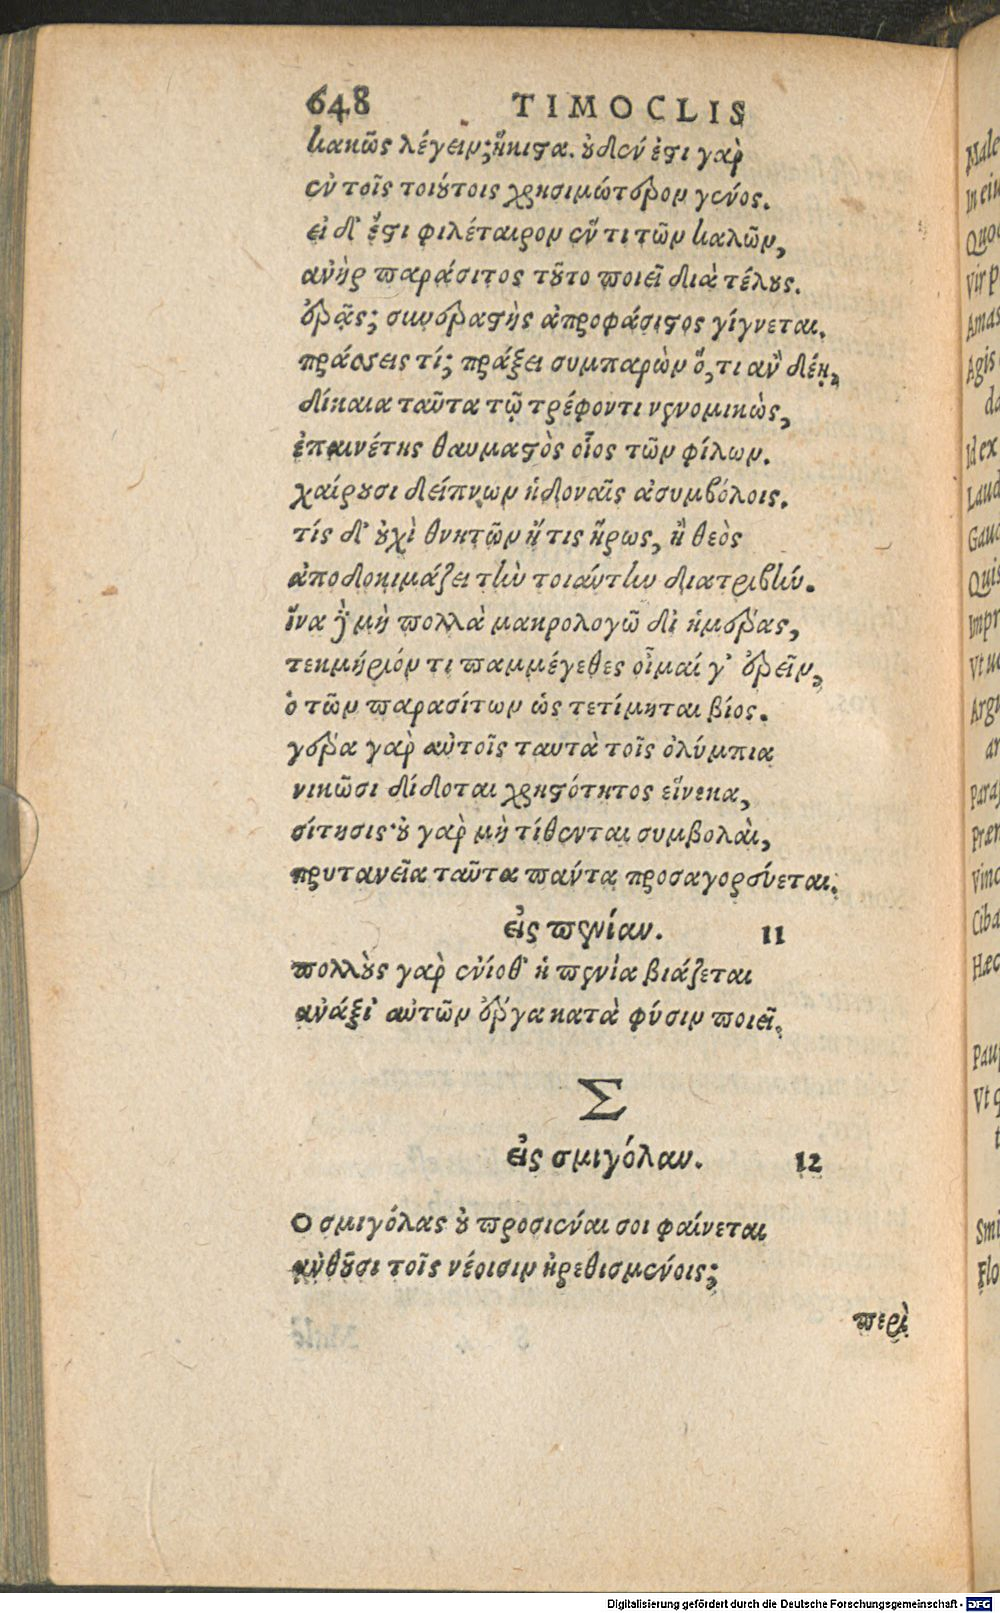 648 TIMOCLIS
κακῶς λέγειν; ἥκιστα. οὐδέν ἐστι γὰρ
ἐν τοῖς τοιούτοις χρησιμώτερον γένος.
εἰ δ' ἔστι φιλέταιρον ἕν τι τῶν καλῶν,
ἀνὴρ παράσιτος τοῦτο ποιεῖ διὰ τέλους.
ἐρᾷς; συνεραστὴς ἀπροφάσιστος γίγνεται.
πράσσεις τί; πράξει συμπαρὼν ὅ, τι ἂν δέῃ,
δίκαια ταῦτα τῷ τρέφοντι νενομικὼς,
ἐπαινέτης θαυμαστὸς οἷος τῶν φίλων.
χαίρουσι δείπνων ἡδοναῖς ἀσυμβόλοις.
τίς δ' οὐχὶ θνητῶν ἤ τις ἥρως, ἢ θεὸς
ἀποδοκιμάζει τὴν τοιαύτην διατριβήν.
ἵνα δὲ μὴ πολλὰ μακρολογῶ δι' ἡμέρας,
τεκμήριόν τι παμμέγεθες οἶμαί γ' ἐρεῖν,
ὁ τῶν παρασίτων ὡς τετίμηται βίος.
γέρα γὰρ αὐτοῖς ταυτὰ τοῖς ὀλύμπια
νικῶσι δίδοται χρηστότητος εἵνεκα,
σίτησις· οὐ γὰρ μὴ τίθενται συμβολαὶ,
πρυτανεῖα ταῦτα πάντα προσαγορεύεται.
εἰς πενίαν. 11
πολλοὺς γὰρ ἐνίοθ' ἡ πενία βιάζεται
ἀνάξι' αὐτῶν ἔργα κατὰ φύσιν ποιεῖ.
Σ
εἰς σμιγόλαν. 12
Ο σμιγόλας οὐ προσιέναι σοι φαίνεται
ἀνθοῦσι τοῖς νέοισιν ἠρεθισμένοις;
περὶ
Digitalisierung gefördert durch die Deutsche Forschungsgemeinschaft - DFG